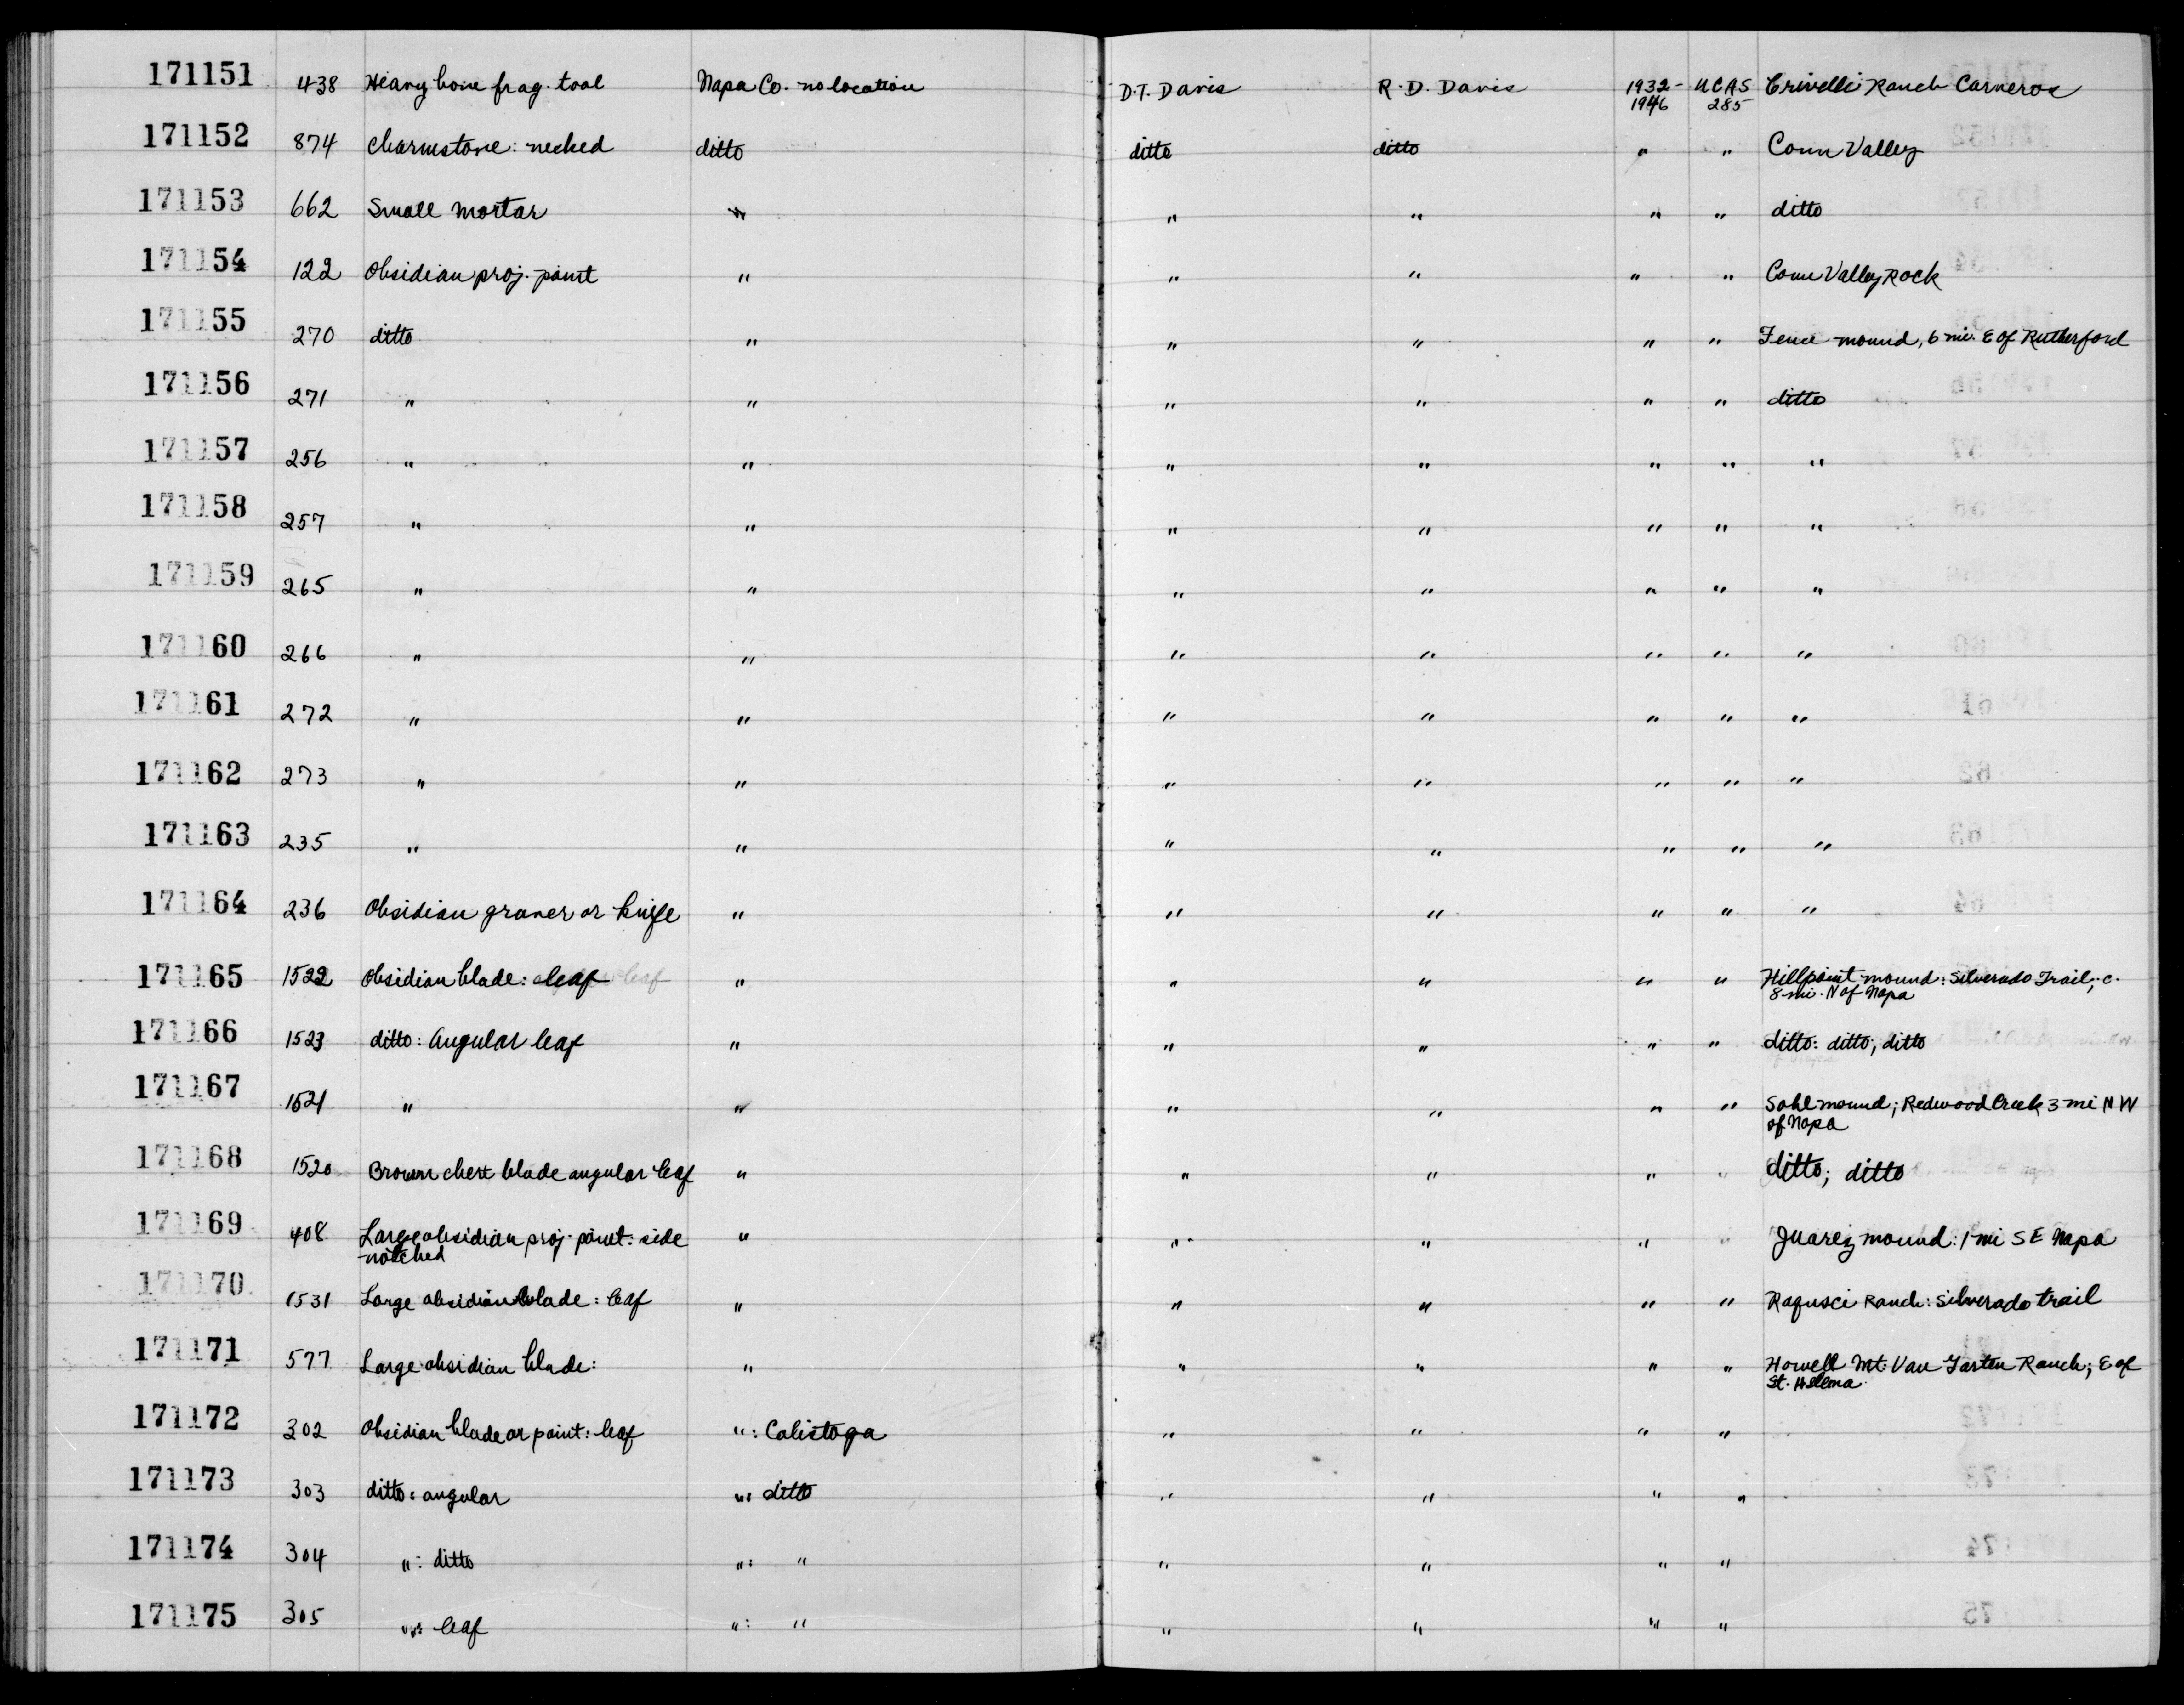 171151 438 Heavy bone frag. tool Napa Co. no location D.T. Davis R.D. Davis 1932- UCAS Crivelli Ranch Carneros
1946 285
171152 874 Charmstone: necked ditto ditto ditto " " Conn Valley
171153 662 Small mortar " " " " " ditto
171154 122 Obsidian proj. point " " " " " Conn Valley Rock
171155 270 ditto " " " " " Fence mound, 6 mi. E of Rutherford
171156 271 " " " " " " ditto
171157 256 " " " " " " "
171158 257 " " " " " " "
171159 265 " " " " " " "
171160 266 " " " " " " "
171161 272 " " " " " " "
171162 273 " " " " " " "
171163 235 " " " " " " "
171164 236 Obsidian graver or knife " " " " " "
171165 1522 Obsidian blade: leaf " " " " " Hillpoint mound: Silverado Trail; c.
8 mi. N of Napa
171166 1523 ditto: Angular leaf " " " " " ditto: ditto; ditto
171167 1521 " " " " " " Sohl mound; Redwood Creek 3 mi NW
of Napa
171168 1520 Brown chert blade angular leaf " " " " " ditto; ditto
171169 408 Large obsidian proj. point: side " " " " " Juarez mound: 1 mi SE Napa
notched
171170 1531 Large obsidian blade: leaf " " " " " Ragusci Ranch: Silverado trail
171171 577 Large obsidian blade: " " " " " Howell Mt. Van Tarten Ranch; E of
St. Helena
171172 302 Obsidian blade or point: leaf ": Calistoga " " " "
171173 303 ditto: angular ": ditto " " " "
171174 304 ": ditto ": " " " " "
171175 305 ": leaf ": " " " " "